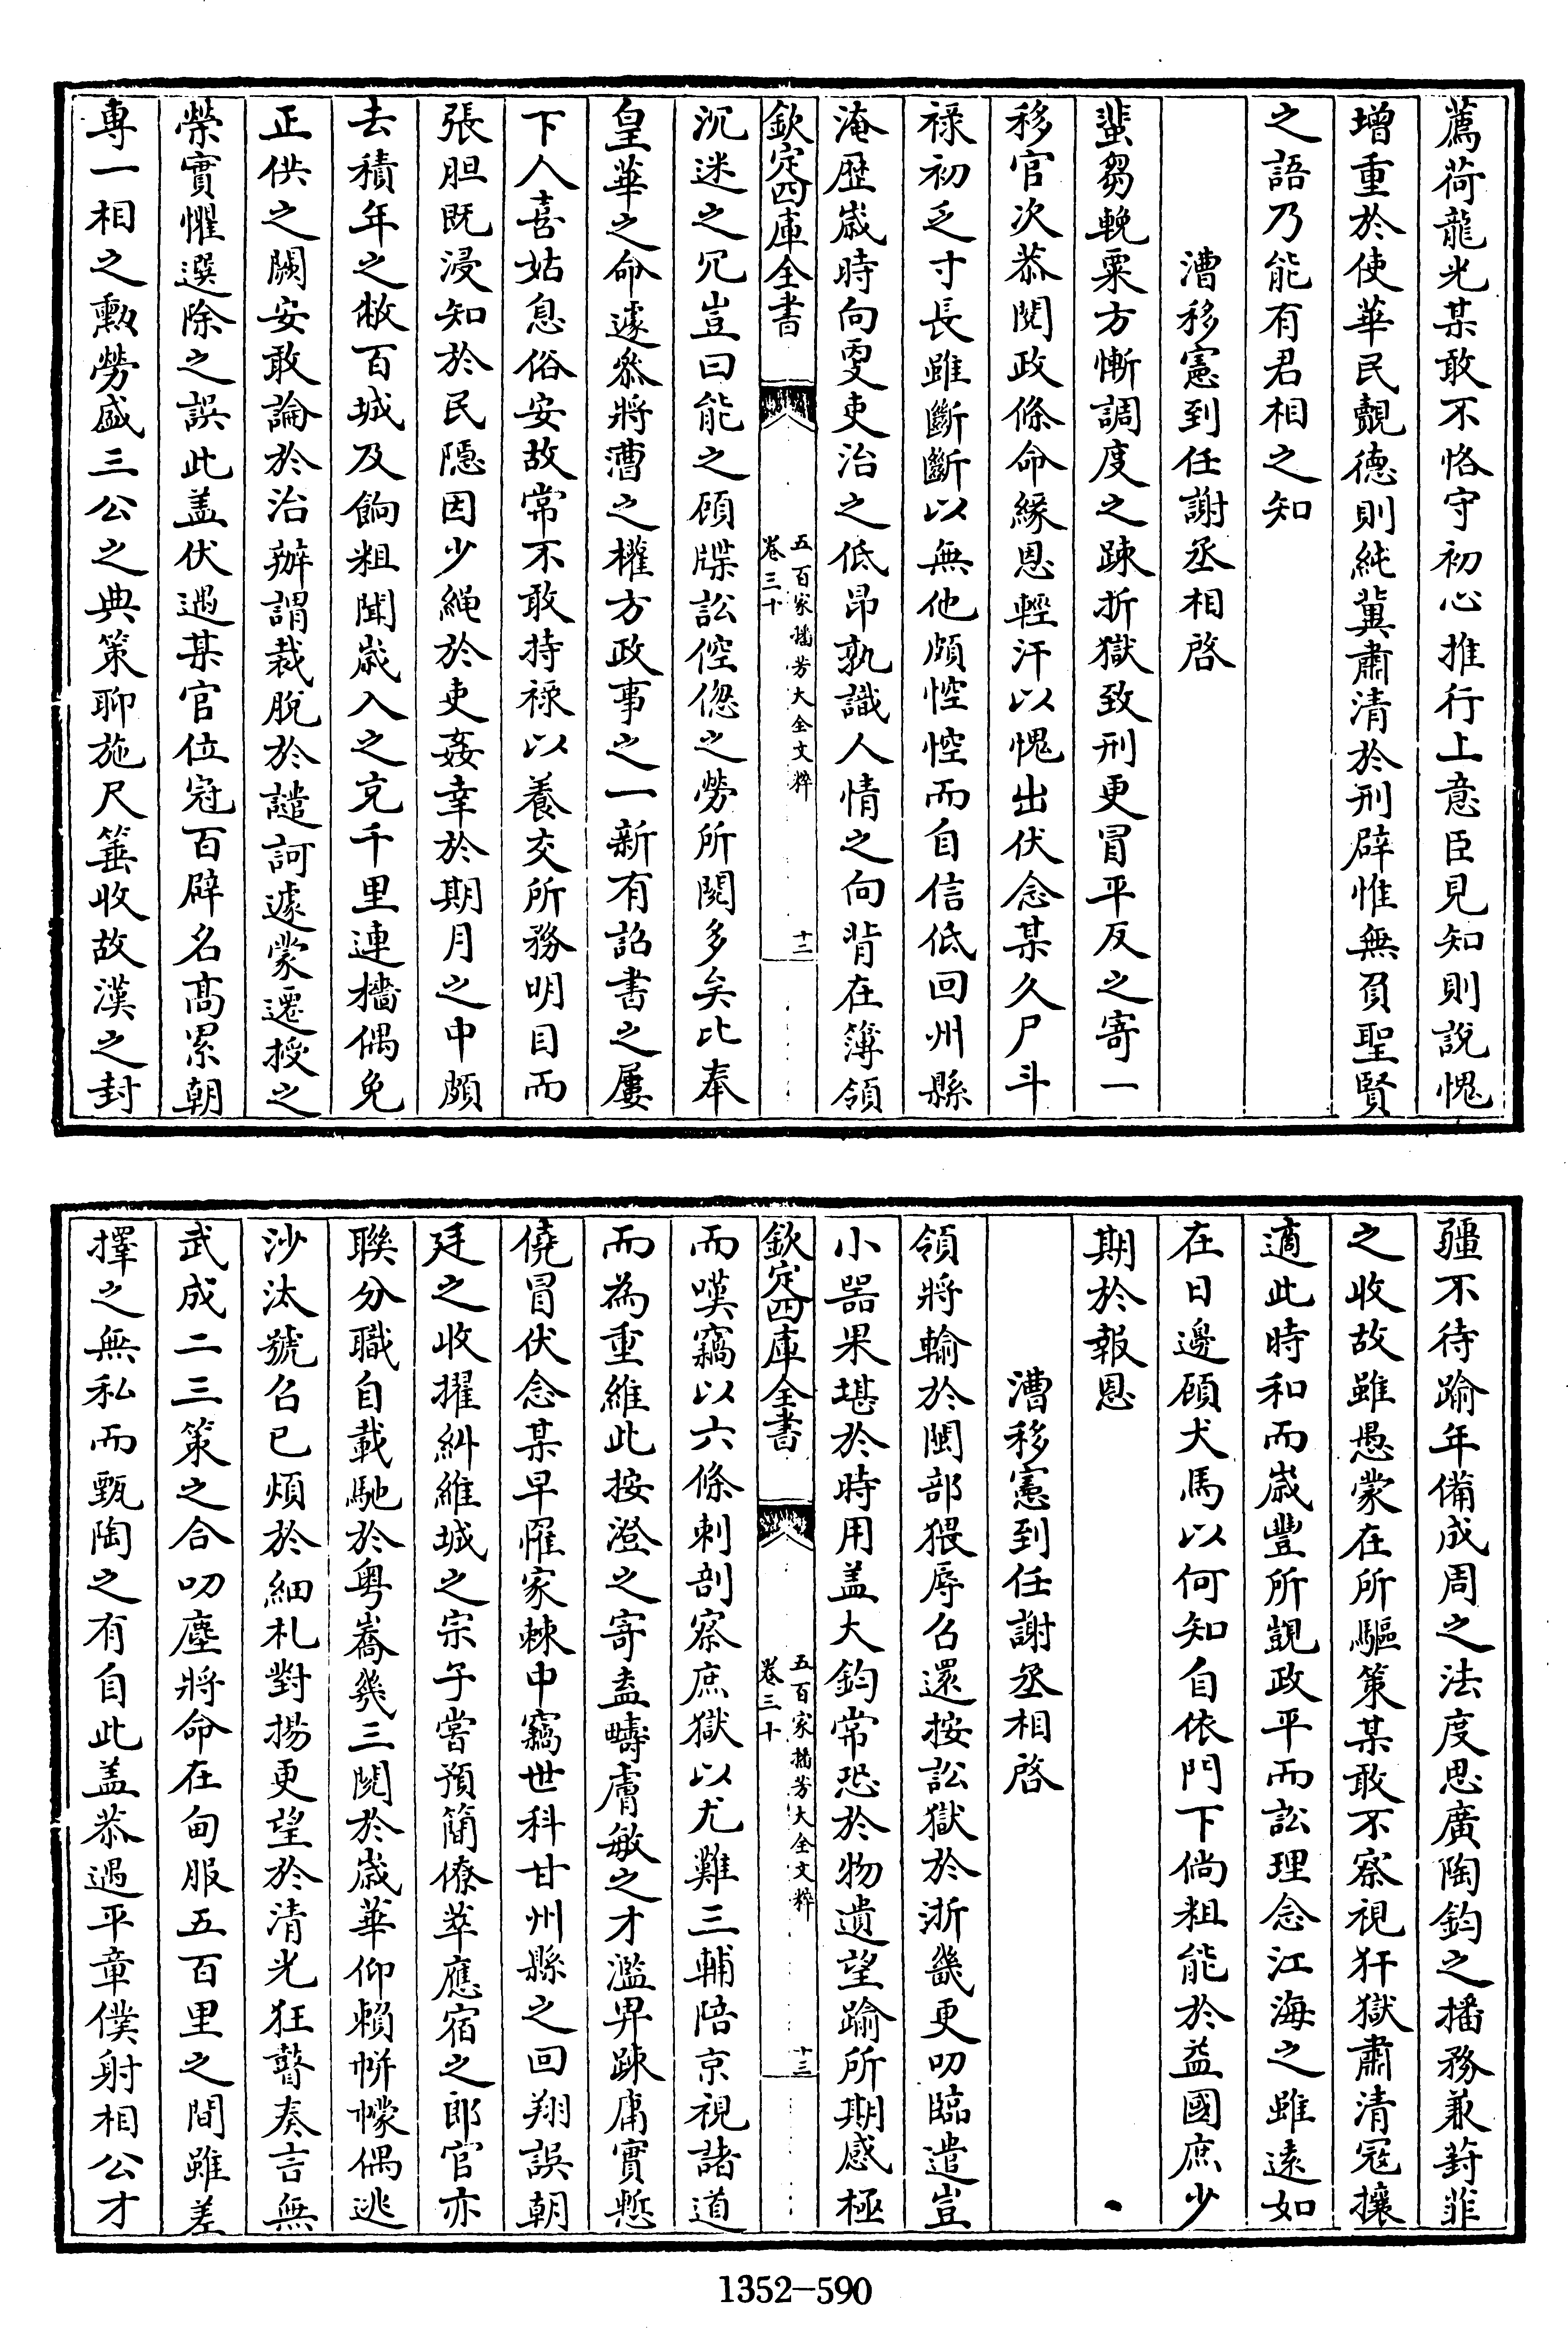 薦荷龍光某敢不恪守初心推行上意臣見知則說愧
增重於使華民覿德則純冀肅清於刑辟惟無負聖賢
之語乃能有君相之知
漕移憲到任謝丞相啓
蜚芻輓粟方慚調度之踈折獄致刑更冒平反之寄一
移官次恭閱政條命緣恩輕汗以愧出伏念某久尸斗
祿初乏寸長雖斷斷以無他頗悾悾而自信低回州縣
淹歷歲時向更吏治之低昂孰識人情之向背在簿領
欽定四庫全書
五百家播芳大全文粹
卷三十
十二
沉迷之冗豈曰能之顧牒訟倥偬之勞所閱多矣比奉
皇華之命遽叅將漕之權方政事之一新有詔書之屢
下人喜姑息俗安故常不敢持祿以養交所務明目而
張胆既浸知於民隱因少繩於吏姦幸於期月之中頗
去積年之敝百城及餉粗聞歲入之充千里連檣偶免
正供之闕安敢論於治辦謂裁脫於譴訶遽蒙遷授之
榮實懼選除之誤此盖伏遇某官位冠百辟名高累朝
專一相之勲勞盛三公之典策聊施尺箠收故漢之封
疆不待踰年備成周之法度思廣陶鈞之播務兼葑菲
之收故雖愚蒙在所驅策某敢不察視犴獄肅清冦攘
適此時和而歲豐所覬政平而訟理念江海之雖遠如
在日邊顧犬馬以何知自依門下倘粗能於益國庶少
期於報恩
漕移憲到任謝丞相啓
領將輸於閩部猥辱召還按訟獄於浙畿更叨臨遣豈
小噐果堪於時用盖大鈞常恐於物遺望踰所期感極
欽定四庫全書
五百家播芳大全文粹
卷三十
十三
而嘆竊以六條刺剖察庶獄以尤難三輔陪京視諸道
而為重維此按澄之寄盍疇膚敏之才濫畀踈庸實慙
僥冒伏念某早罹家棘中竊世科甘州縣之回翔誤朝
廷之收擢糾維城之宗午嘗預簡僚萃應宿之郎官亦
聯分職自載馳於粵嶠幾三閱於歲華仰賴帡幪偶逃
沙汰號召已煩於細札對揚更望於清光狂瞽奏言無
武成二三策之合叨塵將命在甸服五百里之間雖差
擇之無私而甄陶之有自此盖恭遇平章僕射相公才
1352-590